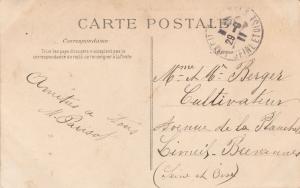 CARTE POSTALE
Correspondance
Tous les pays étrangers n'acceptent pas la
correspondance au recto, se renseigner à la Poste
29
11
Mme & Mr Berger
Cultivateur
Avenue de la Planche
Limeil-Brévannes
(Seine et Oise)
Amitiés à tous